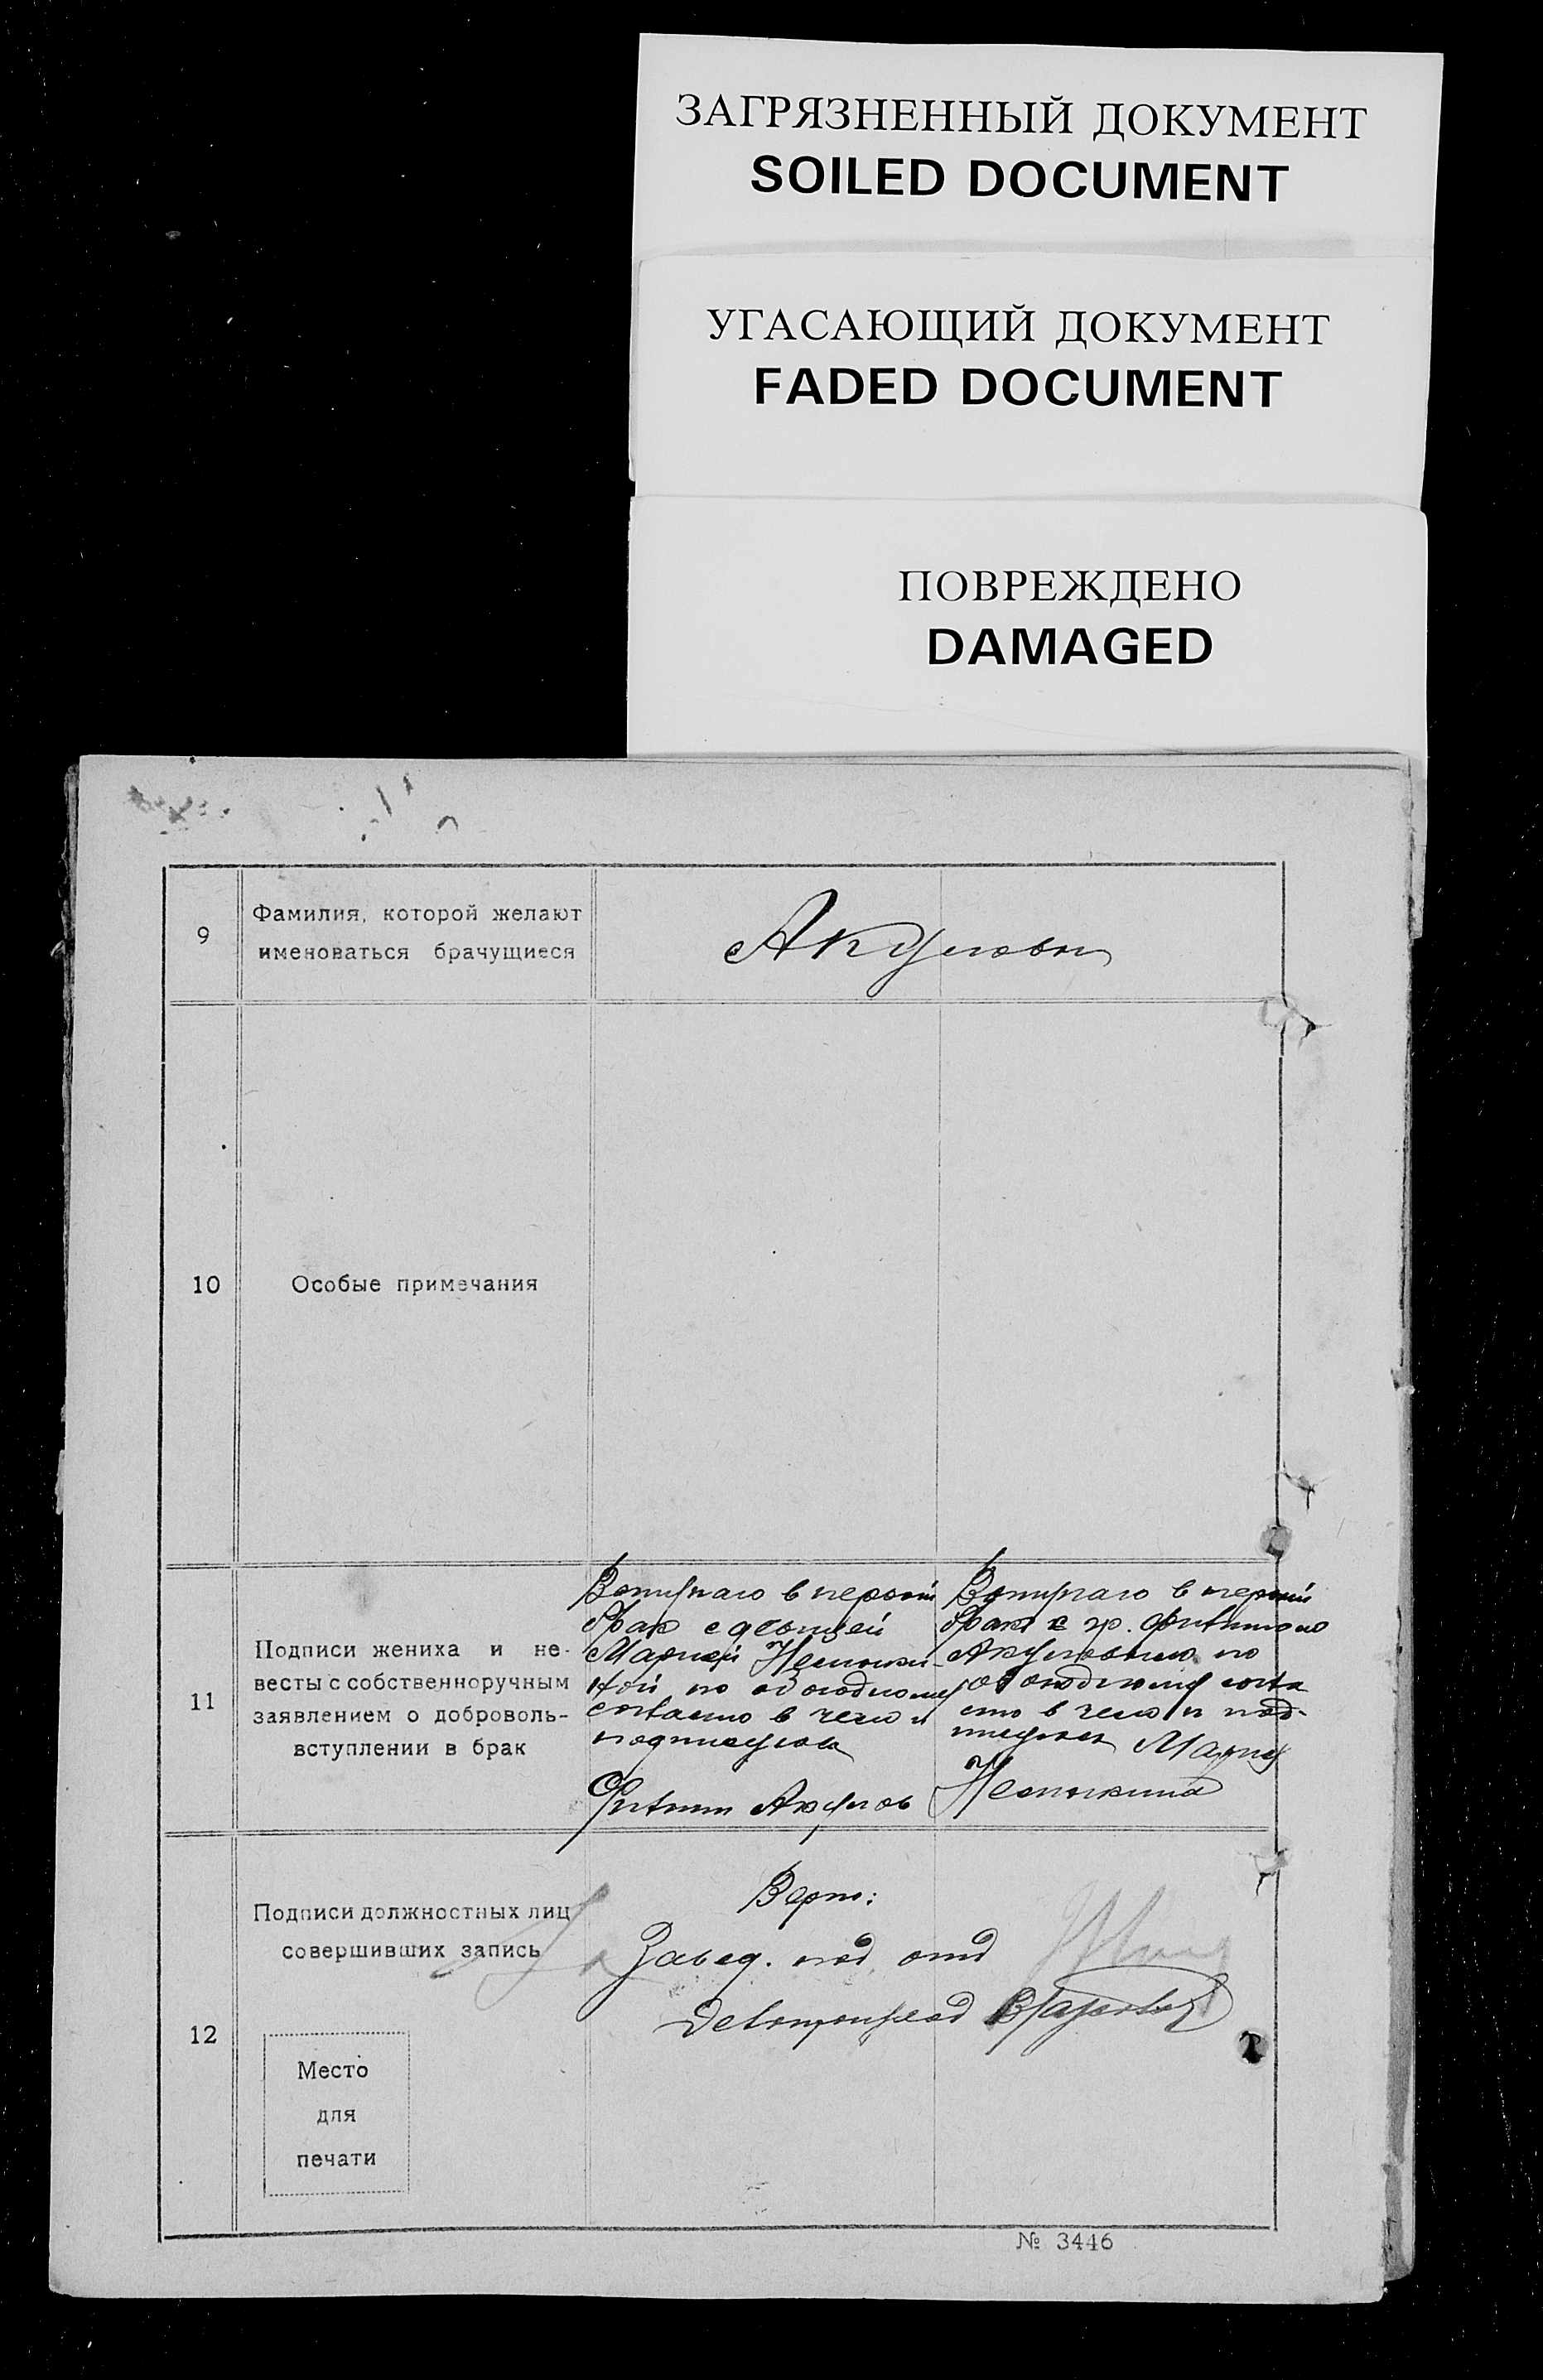 ЗАГРЯЗНЕННЫЙ ДОКУМЕНТ
SOILED DOCUMENT
УГАСАЮЩИЙ ДОКУМЕНТ
FADED DOCUMENT
ПОВРЕЖДЕНО
DAMAGED
9
Фамилия, которой желают
именоваться брачущиеся
Акуловы
10
Особые примечания
11
Подписи жениха и не-
весты с собственноручным
заявлением о доброволь-
вступлении в брак
Вступаю в первый
брак с девицей
Марией
ной по обоюдному
в чем и
подписуюсь
Акулов
Вступаю в первый
брак с гр.
Акуловым по
обоюдному согла
сию в чем и под-
писуюсь Мария
12
Подписи должностных лиц
совершивших запись
Верно:
Завед. под. отд
Место
для
печати
№ 3446